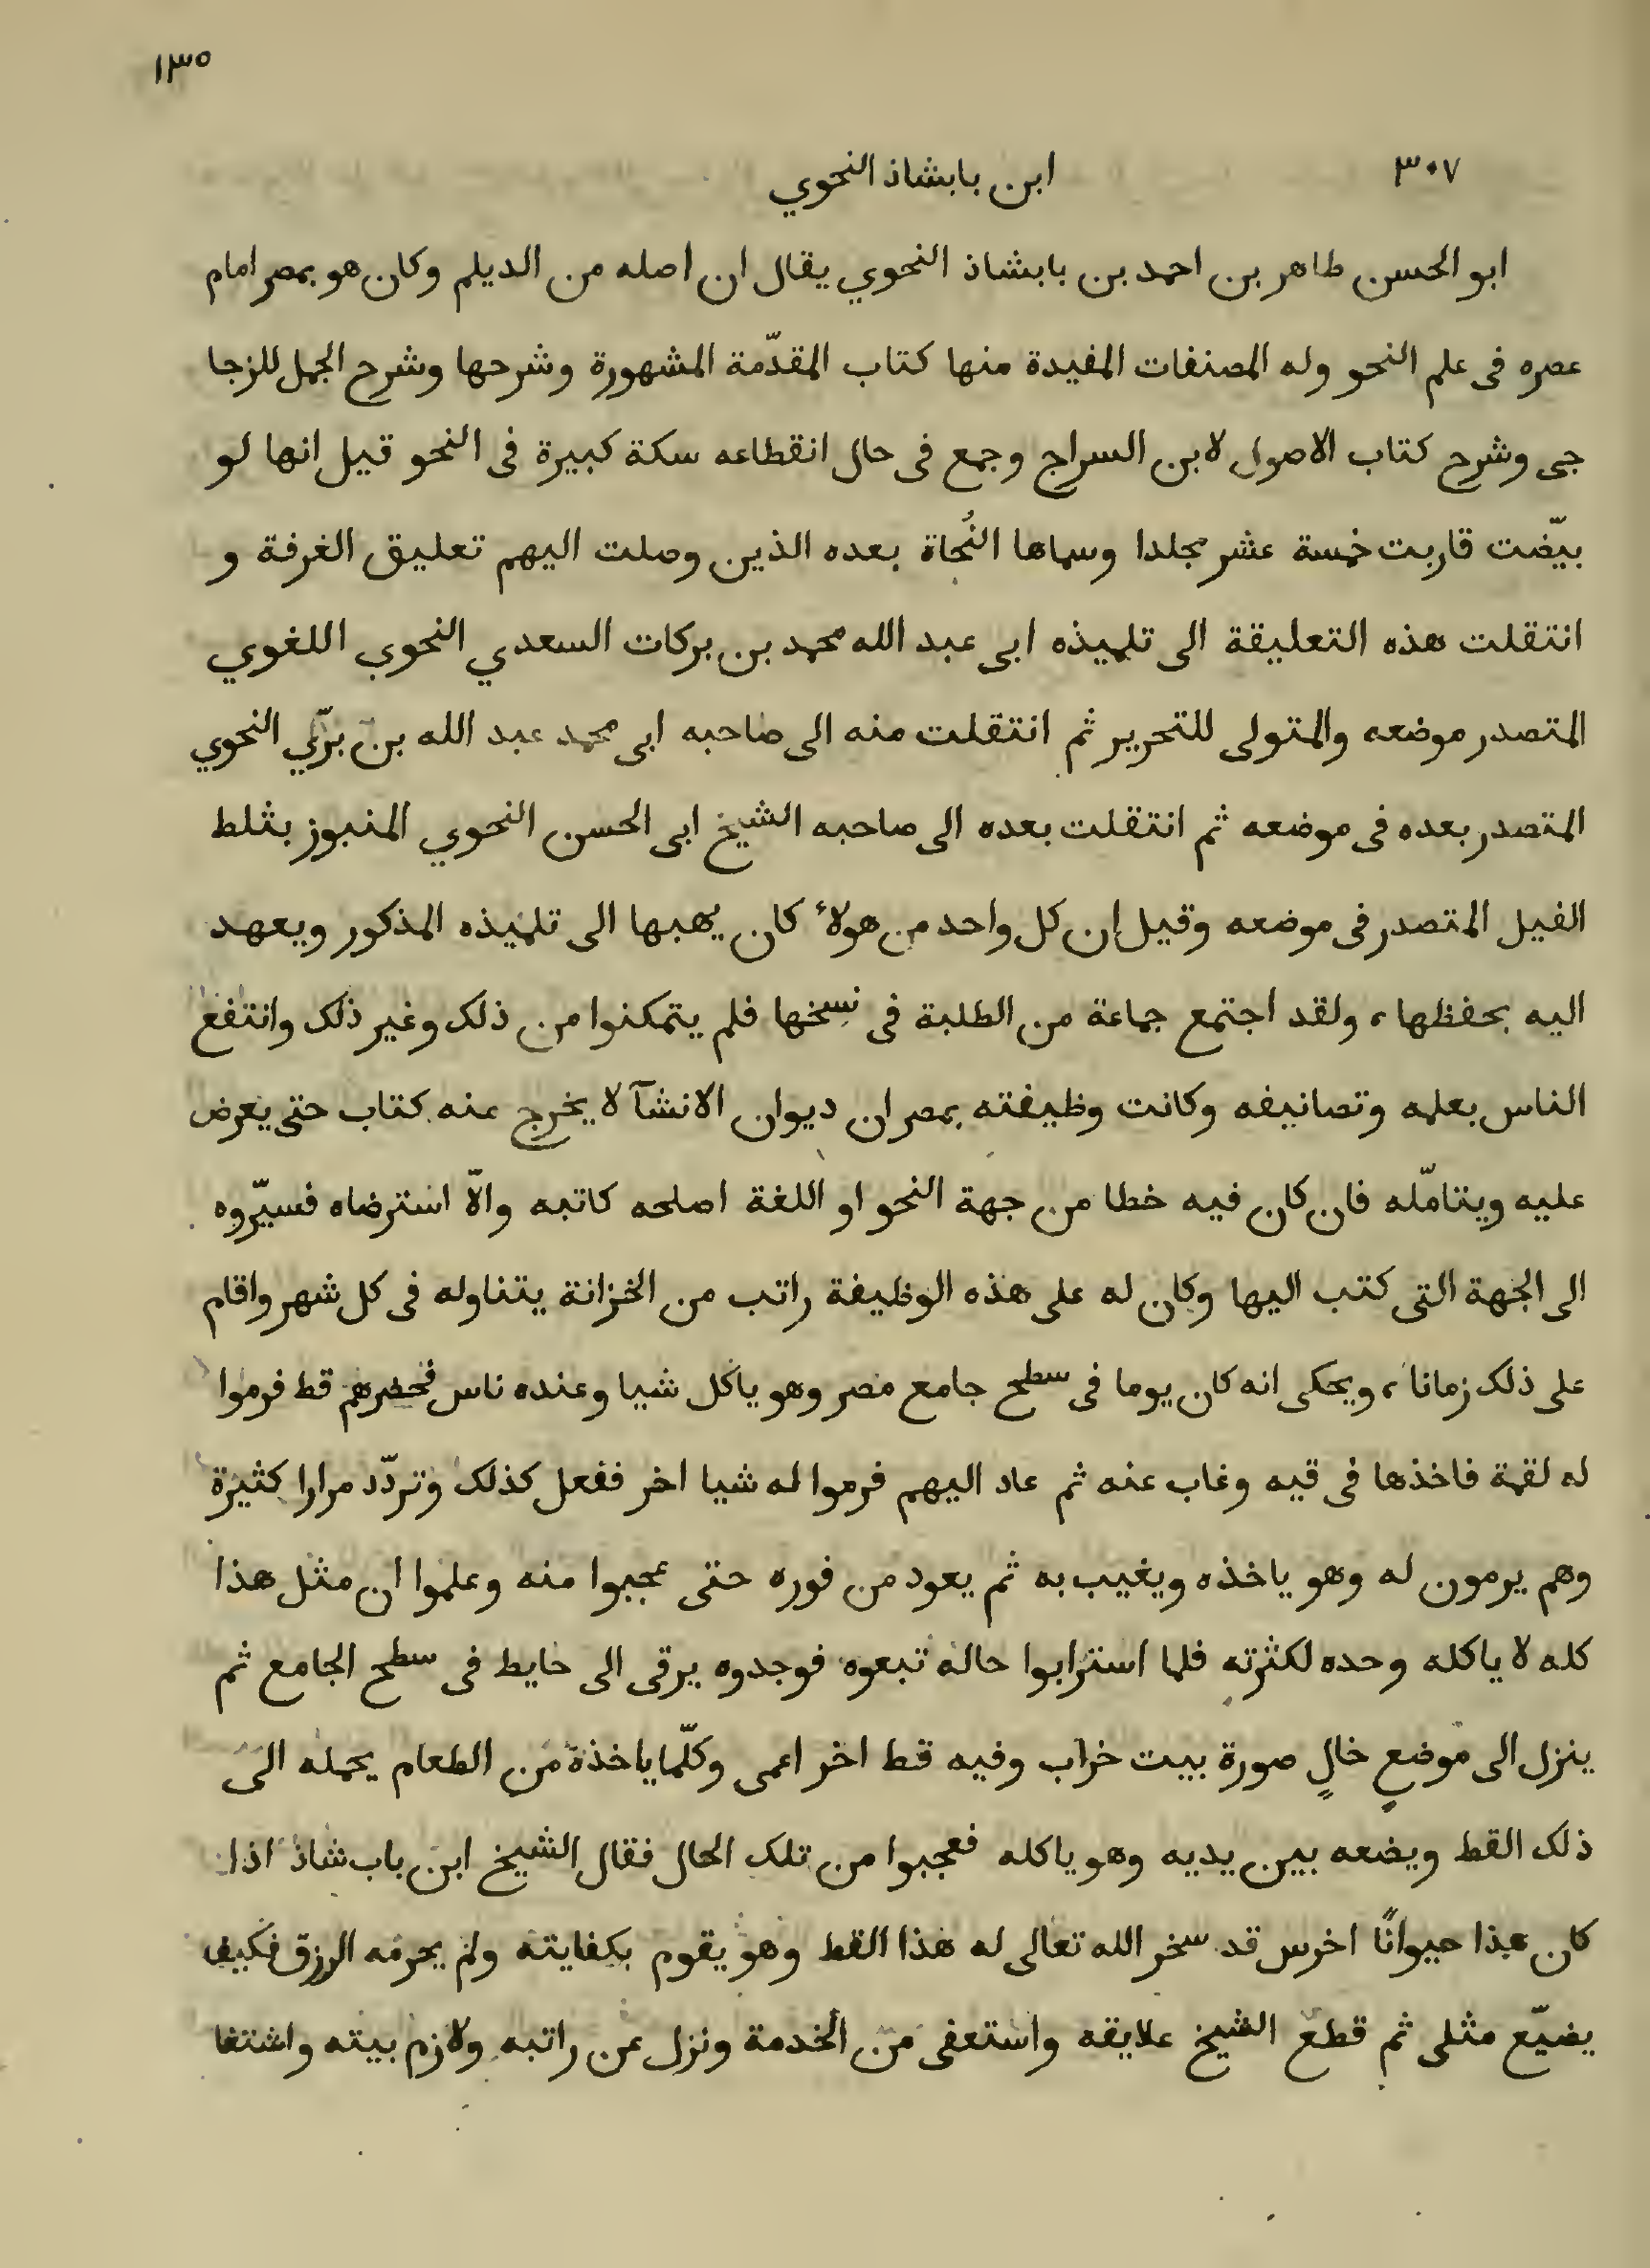 ١٣٥
٣٠٧ ابن بابشاذ النحوي
ابو الحسن طاهر بن احمد بن بابشاذ النحوي يقال ان اصله من الديلم وكان هو بمصر امام
عصره فى علم النحو وله المصنفات المفيدة منها كتاب المقدّمة المشهورة وشرحها وشرح الجمل للزجا
جى وشرح كتاب الاصول لابن السراج وجمع فى حال انقطاعه سكة كبيرة فى النحو قيل انها لو
بيّضت قاربت خمسة عشر مجلدا وسماها النُحاة بعده الذين وصلت اليهم تعليق الغرفة و
انتقلت هذه التعليقة الى تلميذه ابى عبد الله محمد بن بركات السعدي النحوى اللغوي
المتصدر موضعه والمتولى للتحرير ثم انتقلت منه الى صاحبه ابى محمد عبد الله بن برّي النحوي
المتصدر بعده فى موضعه ثم انتقلت بعده الى صاحبه الشيخ ابى الحسن النحوي المنبوز بثلط
الفيل المتصدر فى موضعه وقيل ان كل واحد من هولاء كان يهبها الى تلميذه المذكور ويعهد
اليه بحفظها، ولقد اجتمع جماعة من الطلبة فى نسخها فلم يتمكنوا من ذلك وغير ذلك وانتفع
الناس بعلمه وتصانيفه وكانت وظيفته بمصر ان ديوان الانشآ لا يخرج عنه كتاب حتى يعرض
عليه ويتامّله فان كان فيه خطا من جهة النحو او اللغة اصلحه كاتبه والاّ استرضاه فسيّروه
الى الجهة التى كتب اليها وكان له على هذه الوظيفة راتب من الخزانة يتناوله فى كل شهر واقام
على ذلك زمانا، ويحكى انه كان يوما فى سطح جامع مصر وهو ياكل شيا وعنده ناس فحضرهم قط فرموا
له لقمة فاخذها فى فيه وغاب عنه ثم عاد اليهم فرموا له شيا اخر ففعل كذلك وتردّد مرارا كثيرة
وهم يرمون له وهو ياخذه ويغيب به ثم يعود من فوره حتى عجبوا منه وعلموا ان مثل هذا
كله لا ياكله وحده لكثرته فلما استرابوا حاله تبعوه فوجدوه يرقى الى حايط فى سطح الجامع ثم
ينزل الى موضعٍ خالٍ صورة بيت خراب وفيه قط اخر اعمى وكلّما ياخذه من الطعام يحمله الى
ذلك القط ويضعه بين يديه وهو ياكله فعجبوا من تلك الحال فقال الشيخ ابن باب شاذ اذا
كان هذا حيوانًا اخرس قد سخر الله تعالى له هذا القط وهو يقوم بكفايته ولم يحرمه الرزق فكيف
يضيّع مثلى ثم قطع الشيخ علايقه واستعفى من الخدمة ونزل عن راتبه ولازم بيته واشتغا